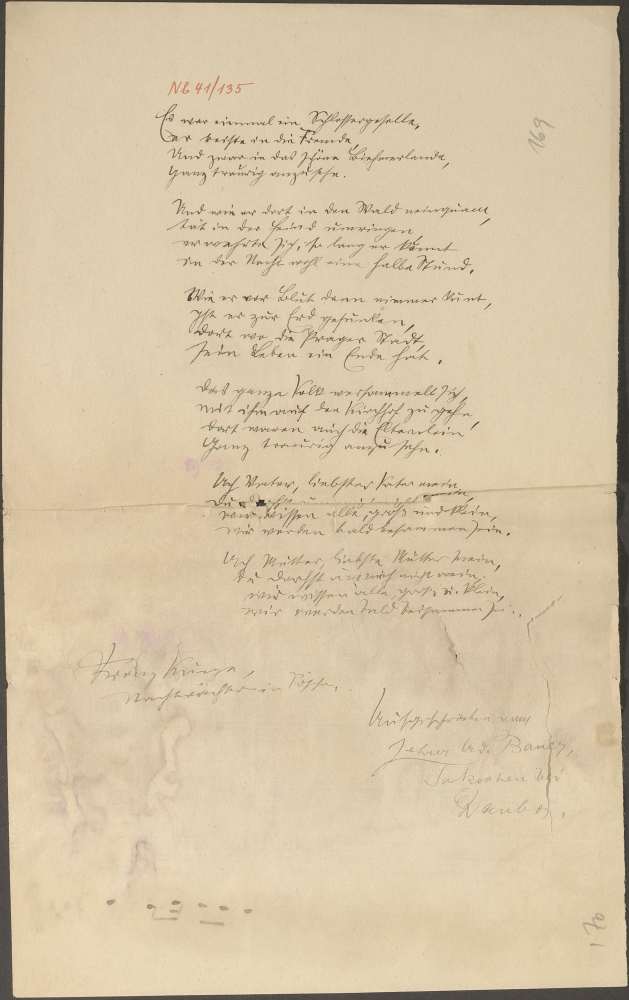 N[?] 41/135
169
Es war einmal ein Schlossergeselle,
er reiste in die Fremde
Und zwar in das schöne Böhmerlande,
Ganz traurig anzusehn.
Und wie er dort in den Wald neinquam,
tät in der Feind umringen,
er wehrte sich, so lang er konnt
in der Nacht wohl eine halbe Stund.
Wie er vor Blut dann nimmer kunt,
Ist er zur Erd gesunken,
dort wo die Prager Stadt,
sein Leben ein Ende hat.
Das ganze Volk versammelt sich,
mit ihm auf den Kirchhof zu gehn,
dort waren auch die Elterlein
Ganz traurig anzusehn.
Ach Vater, liebster Vater mein,
du
wir wissen alle, groß und klein,
wir werden bald beisammen sein.
Ach Mutter, liebste Mutter mein,
du darfst um mich nicht wein,
wir wissen alle, groß u. klein,
wir werden bald beisammen sein.
Franz
Nachtwächter in
Aufgeschrieben von
Lehrer
bei
Dauba.
170